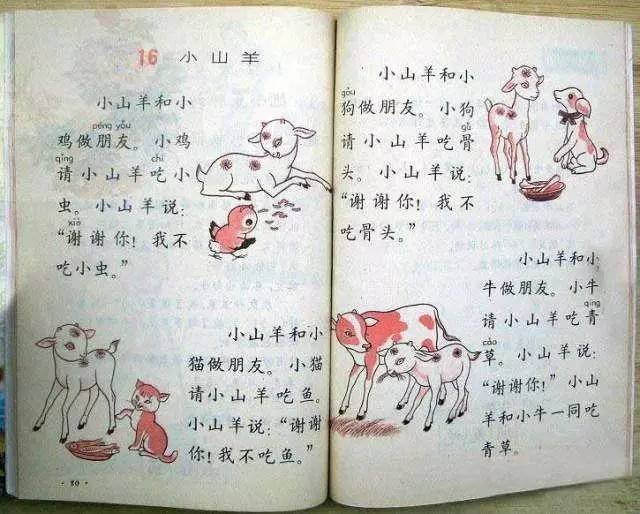 16 小山羊
小山羊和小
péng yǒu
鸡做朋友。小鸡
qǐng chī
请小山羊吃小
虫。小山羊说:
xiè
“谢谢你!我不
吃小虫。”
小山羊和小
猫做朋友。小猫
请小山羊吃鱼。
小山羊说:“谢谢
你!我不吃鱼。”
·80·
小山羊和小
gǒu
狗做朋友。小狗
gǔ
请小山羊吃骨
头。小山羊说:
“谢谢你!我不
吃骨头。”
小山羊和小
牛做朋友。小牛
qīng
请小山羊吃青
cǎo
草。小山羊说:
“谢谢你!”小山
羊和小牛一同吃
青草。